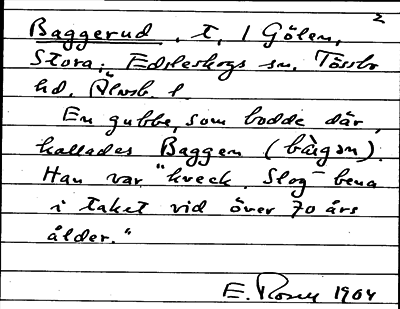 2
Baggerud, t, 1 Gölen,
Stora; Edsleskogs sn. Tössbo
hd. Älvsb. l.
En gubbe, som bodde där,
kallades Baggen (bàggən).
Han var "kveck. Slog bena
i taket vid över 70 års
ålder."
E. Rosell 1904